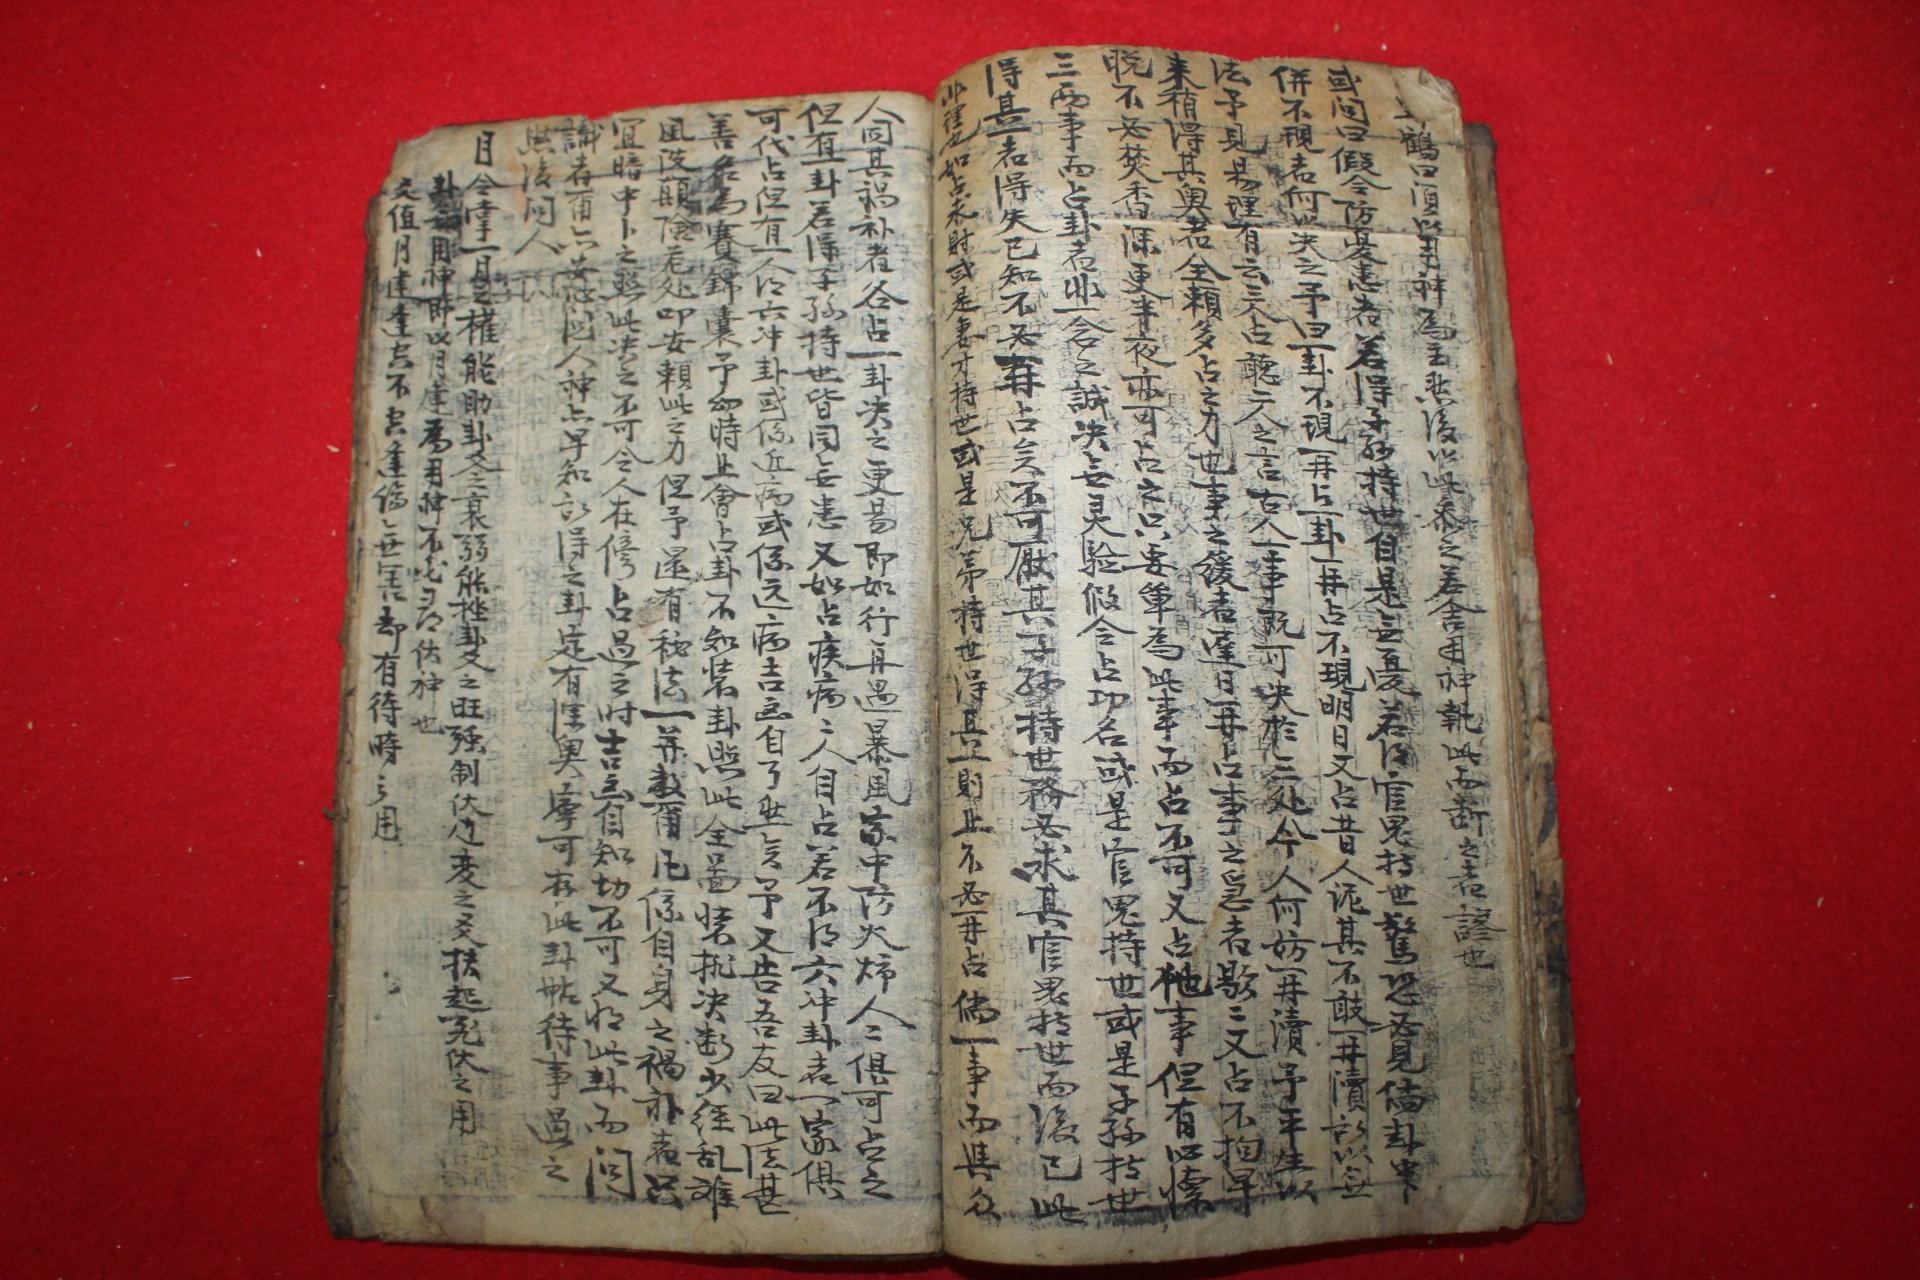 鶴曰須以用神為主然後以此參之若舍用神執此而斷之者謬也
或问曰假令防憂患者若得子孫持世自是無憂若得官鬼持世驚恐必見倘卦中
併不現者何以决之予曰一卦不現再占一卦再占不現明日又占昔人泥其不敢再瀆所以無
法予見易理有云三人占聽二人之言古人一事既可决於三处今人何妨再瀆予年年以
来稍得其奥者全賴多占之力也事之緩者遲日再占事之急者歇歇又占不拘早
晚不必焚香深更半夜亦可占之只要单為此事而占不可又占他事但有心懷
三两事而占卦者非一念之誠决無灵验假令占功名或是官鬼持世或是子孫持世
得其一者得失已知不必再占矣不可厭其子孫持世務必求其官鬼持世而後已此
非理也如占求財或是妻才持世或是兄弟持世得其一則止不必再占倘一事而其众
人同其禍福者各占一卦决之更易即如行舟遇暴風家中防火烛人人俱可占之
但有一卦若得子孫持世皆同無患又如占疾病人人自占若不得六冲卦者一家俱
可代占但有一人得六冲卦或係近病或係远病吉凶自了然矣予又告吾友曰此法甚
善名為賽錦囊予幼時止會占卦不知装卦照此全啚装排决断少经乱难
風波顛險危处即安賴此之力但予還有秘法一并教爾凡係自身之禍福者只
宜暗中卜之照此决之不可令人在傍占過之时吉凶自知切不可又将此卦而问
識者一有六妄念则人神亦早知所得之卦定有深奥寧可存此卦帖待事過之
然後问人
月令掌一月之權能助卦爻之衰弱能挫卦爻之旺强制伏过变之爻扶起飛伏之用
卦無用神即以月建為用神不必另尋伏神也
爻值月建逢空不空逢傷無害却有待時之用